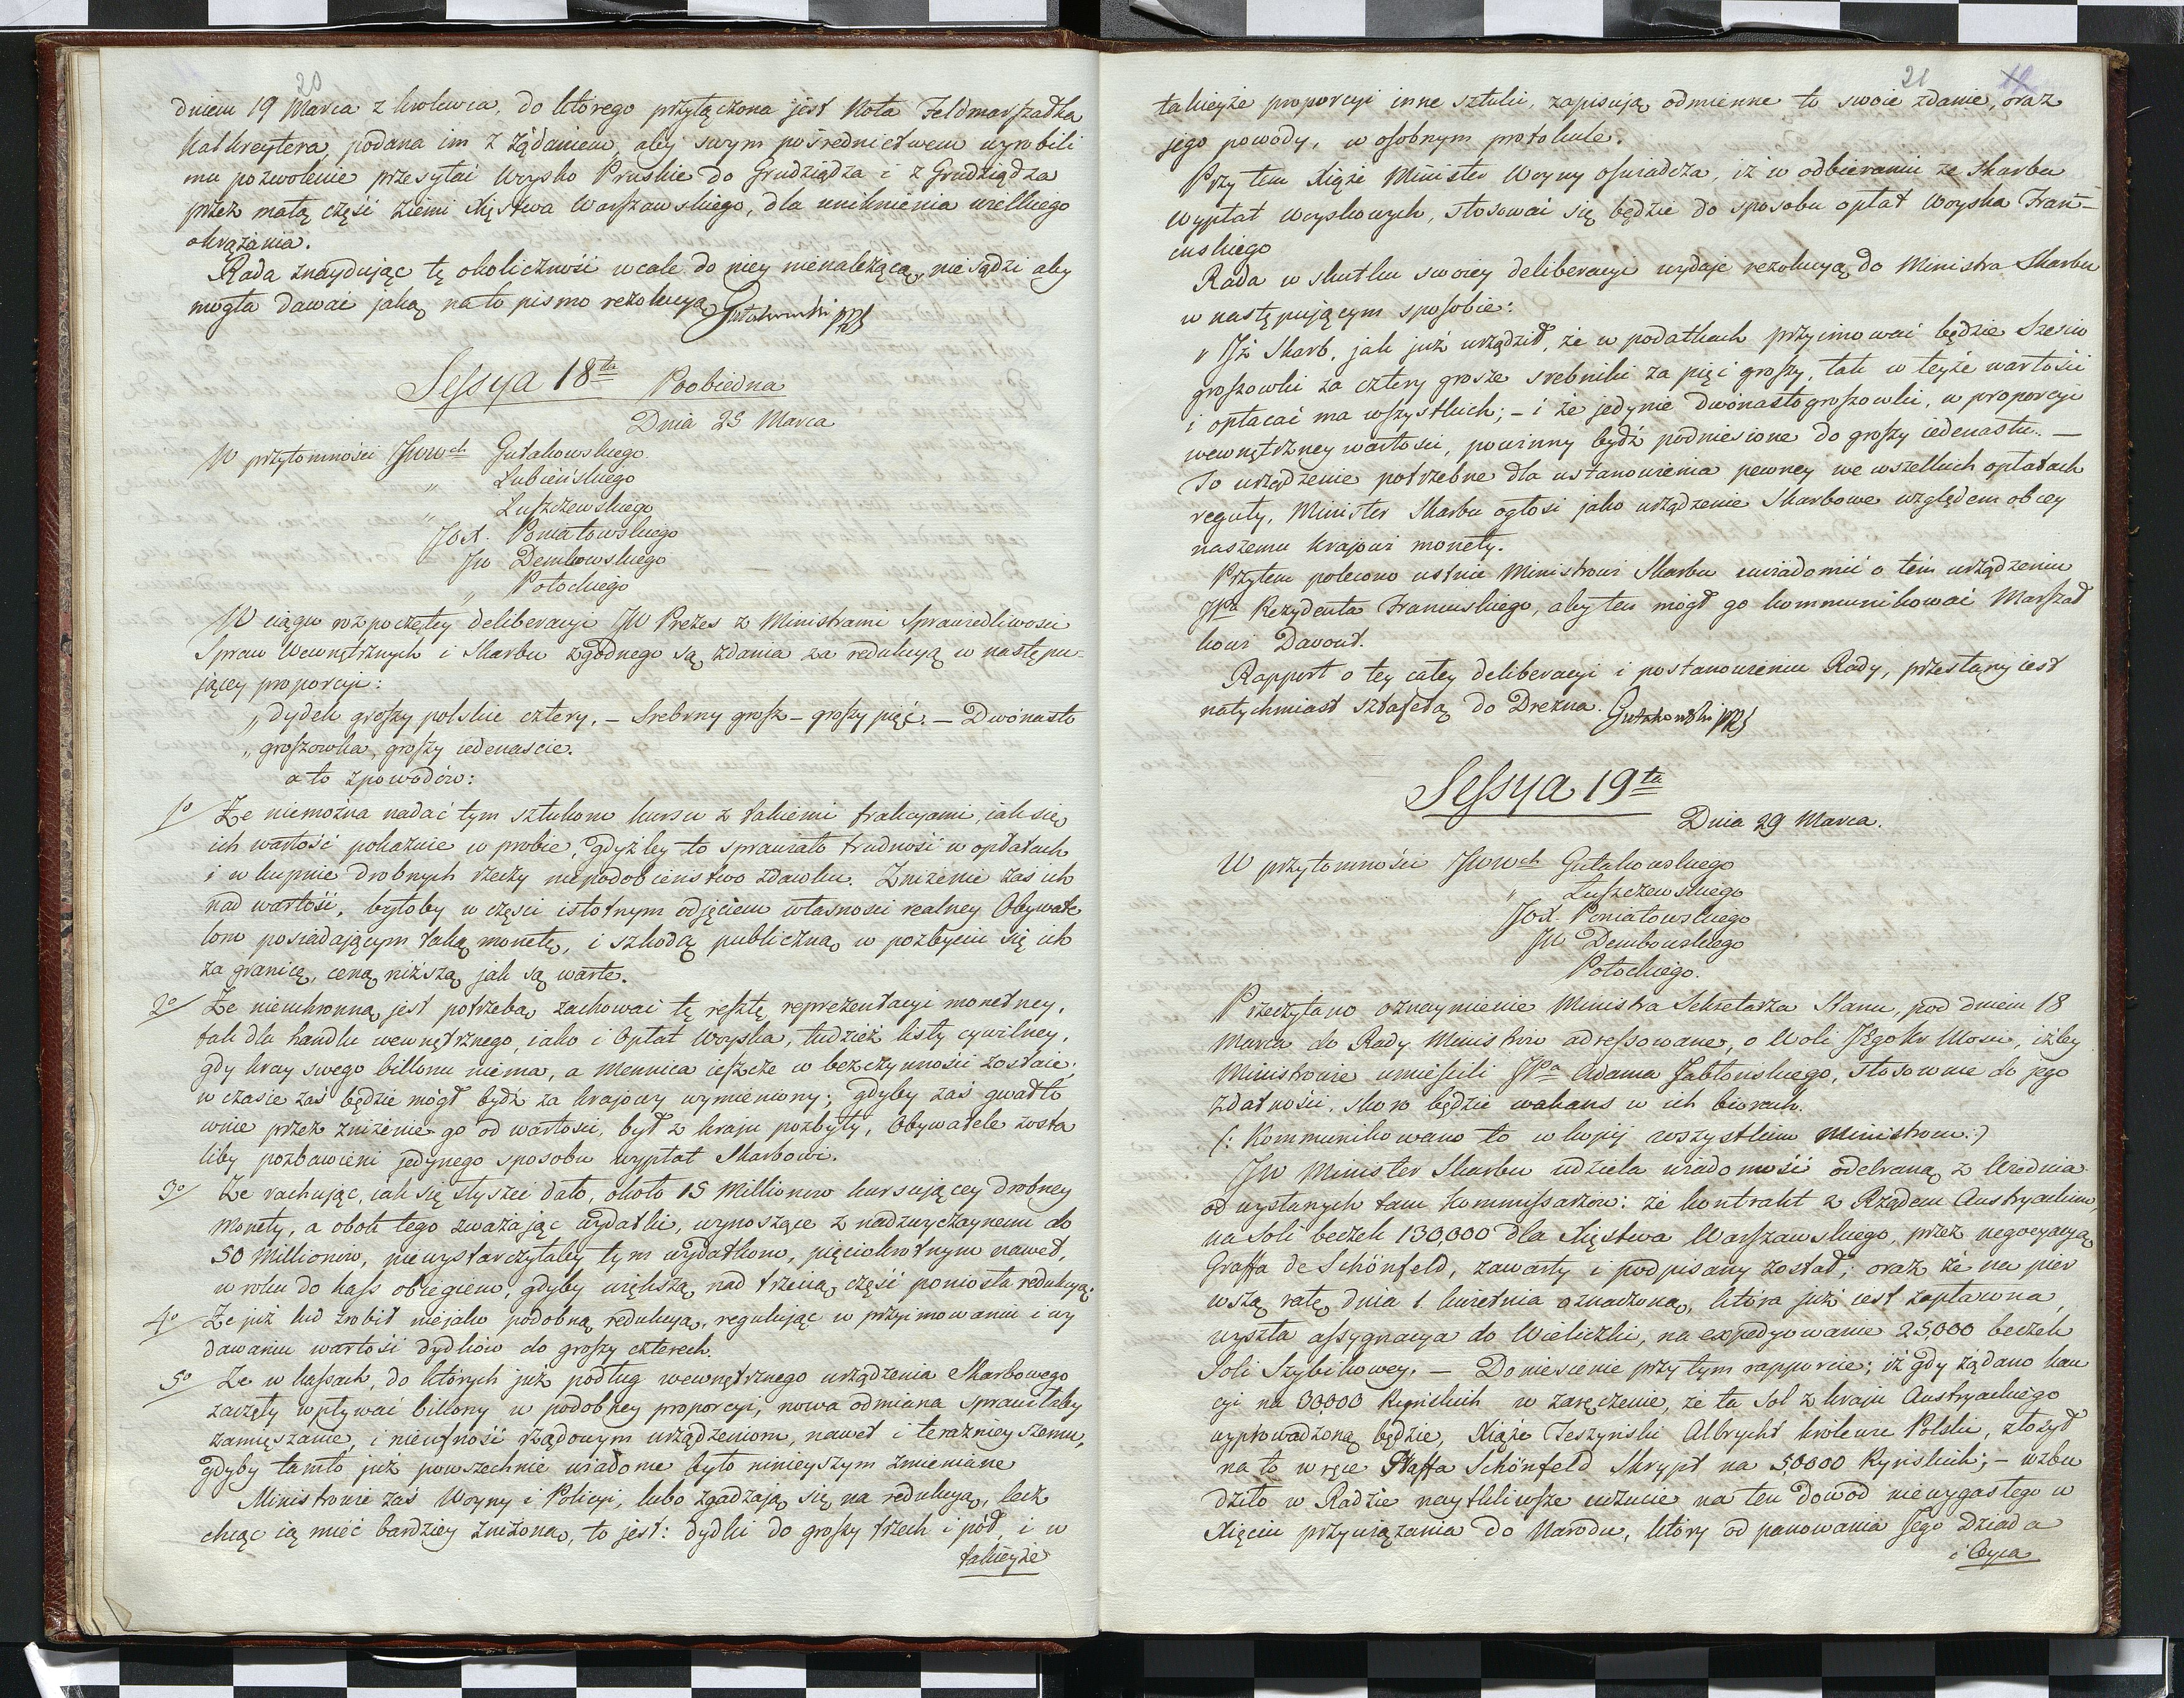 20
dniem 19 Marca z Krolewca, do którego przyłączona jest Nota Feldmarszałka
Kalkreytera, podana im z żądaniem, aby swym pośrednictwem wyrobili
mu pozwolenie przesyłać Woysko Pruskie do Grudziądza i z Grudziądza
przez małą część ziemi Xięstwa Warszawskiego, dla uniknienia wielkiego
okrążania.
Rada znayduiąc tę okoliczność wcale do niey nienależącą, nie sądzi aby
mogła dawać jaką na to pismo rezolucyą. Gutakowski prs
Sessya 18ta Poobiedna
Dnia 23 Marca
W przytomności JWWch Gutakowskiego
" Łubieńskiego
" Łuszczewskiego
JOX. Poniatowskiego
JW Dembowskiego
" Potockiego
W ciągu rozpoczętey deliberacyi JW Prezes z Ministrami Sprawiedliwości
Spraw Wewnętrznych i Skarbu zgodnego są zdania za redukcyą w następu-
jącey proporcyi:
„ dydek groszy polskie cztery. – Srebrny grosz – groszy pięć. – Dwónasto
„ groszowka, groszy iedenaście.
a to z powodów:
1o Że niemożna nadać tym sztukom kursu z takiemi frakcyami, iak się
ich wartość pokazuie w probie, gdyżby to sprawiało trudność w opłatach
i w kupnie drobnych rzeczy niepodobieństwo zdawku. Zniżenie zaś ich
nad wartość, byłoby w części istotnym odjęciem własności realney Obywate
lom posiadającym taką monetę, i szkodą publiczną w pozbyciu się ich
za granicę, ceną niższą jak są warte.
2o Że nieuchronną jest potrzebą zachować tę resztę reprezentacyi monetney,
tak dla handlu wewnętrznego, iako i Opłat Woyska, tudzież listy cywilney,
gdy kray swego billonu niema, a Mennica ieszcze w bezczynności zostaie;
w czasie zaś będzie mógł bydź za kraiowy wymieniony; gdyby zaś gwałto
wnie przez zniżenie go od wartości, był z kraju pozbyty, Obywatele zosta
liby pozbawieni jedynego sposobu wypłat Skarbowi.
3o Że rachując, iak się słyszeć dało, około 15 Millionów kursującey drobney
Monety, a obok tego zważając wydatki, wynoszące z nadzwyczaynemi do
50 Millionow, niewystarczyłaby tym wydatkom, pięciokrotnym nawet,
w roku do kass obiegiem, gdyby większą nad trzecią część poniosła redukcyą.
4o Że już lud zrobił niejako podobną redukcyą, regulując w przyimowaniu i wy
dawaniu wartość dydków do groszy czterech.
5o Że w kassach, do których już podług wewnętrznego urządzenia Skarbowego
zaczęły wpływać billony w podobney proporcyi, nowa odmiana sprawiłaby
zamięszanie, i nieufność rządowym urządzeniom, nawet i teraźnieyszemu,
gdyby tamto już powszechnie wiadome było ninieyszym zmieniane
Ministrowie zaś Woyny i Policyi, lubo zgadzają się na redukcyą, lecz
chcąc ią mieć bardziey zniżoną, to jest: dydki do groszy trzech i pół, i w
takieyże
21
takieyże proporcyi inne sztuki, zapisują odmienne to swoie zdanie, oraz
jego powody, w osobnym protokule.
Przy tem Xiąże Minister Woyny oświadcza, iż w odbieraniu ze Skarbu
wypłat woyskowych, stosować się będzie do sposobu opłat Woyska Fran-
cuskiego
Rada w skutku swoiey deliberacyi wydaje rezolucyą do Ministra Skarbu
w następującym sposobie:
„ Iż Skarb, jak już urządził, że w podatkach przyimować będzie Sześcio
groszowki za cztery grosze srebniki za pięć groszy, tak w teyże wartości
i opłacać ma wszystkich; – i że jedynie dwónastogroszowki, w proporcyi
wewnętrzney wartości, powinny bydź podniesione do groszy iedenastu. –
To urządzenie potrzebne dla ustanowienia pewney we wszelkich opłatach
reguły, Minister Skarbu ogłosi jako urządzenie Skarbowe względem obcey
naszemu krajowi monety.
Przytem polecono ustnie Ministrowi Skarbu uwiadomić o tem urządzeniu
JPa Rezydenta Francuskiego, aby ten mógł go kommunikować Marszał
kowi Davout.
Rapport o tey całey deliberacyi i postanowieniu Rady, przesłany iest
natychmiast sztafetą do Drezna. Gutakowski prs
Sessya 19ta
Dnia 29 Marca.
W przytomności JWWch Gutakowskiego
" Łuszczewskiego
JOX. Poniatowskiego
JW Dembowskiego
Potockiego.
Przeczytano oznaymienie Ministra Sekretarza Stanu, pod dniem 18
Marca do Rady Ministrów adressowane, o Woli JEgo Kr Mości, iżby
Ministrowie umieścili JPa Adama Jabłońskiego, stosownie do jego
zdatności, skoro będzie wakans w ich biorach.
(: Kommunikowano to w kopij wszystkim Ministrom:)
JW Minister Skarbu udziela wiadomość odebraną z Wiednia
od wysłanych tam Kommissarzów: że kontrakt z Rządem Austryackim,
na Soli beczek 130,000 dla Xięstwa Warszawskiego, przez negocyacyą
Graffa de Schönfeld, zawarty i podpisany został; oraz że na pier
wszą ratę dnia 1. kwietnia oznaczoną, która już iest zapłacona,
wyszła assygnacya do Wieliczki, na expedyowanie 25,000 beczek
Soli Szybikowey. – Doniesienie przy tym rapporcie; iż gdy żądano kau
cyi na 30,000 Ryńskich w zaręczenie, że ta Sol z kraju Austryackiego
wyprowadzoną będzie, Xiąże Teszyński Albrycht krolewic Polski, złożył
na to w ręce Graffa Schönfeld Skrypt na 50,000 Ryńskich; – wzbu
dziło w Radzie naytkliwsze uczucie na ten dowód niewygasłego w
Xięciu przywiązania do Narodu, który od panowania Jego Dziada
i Oyca